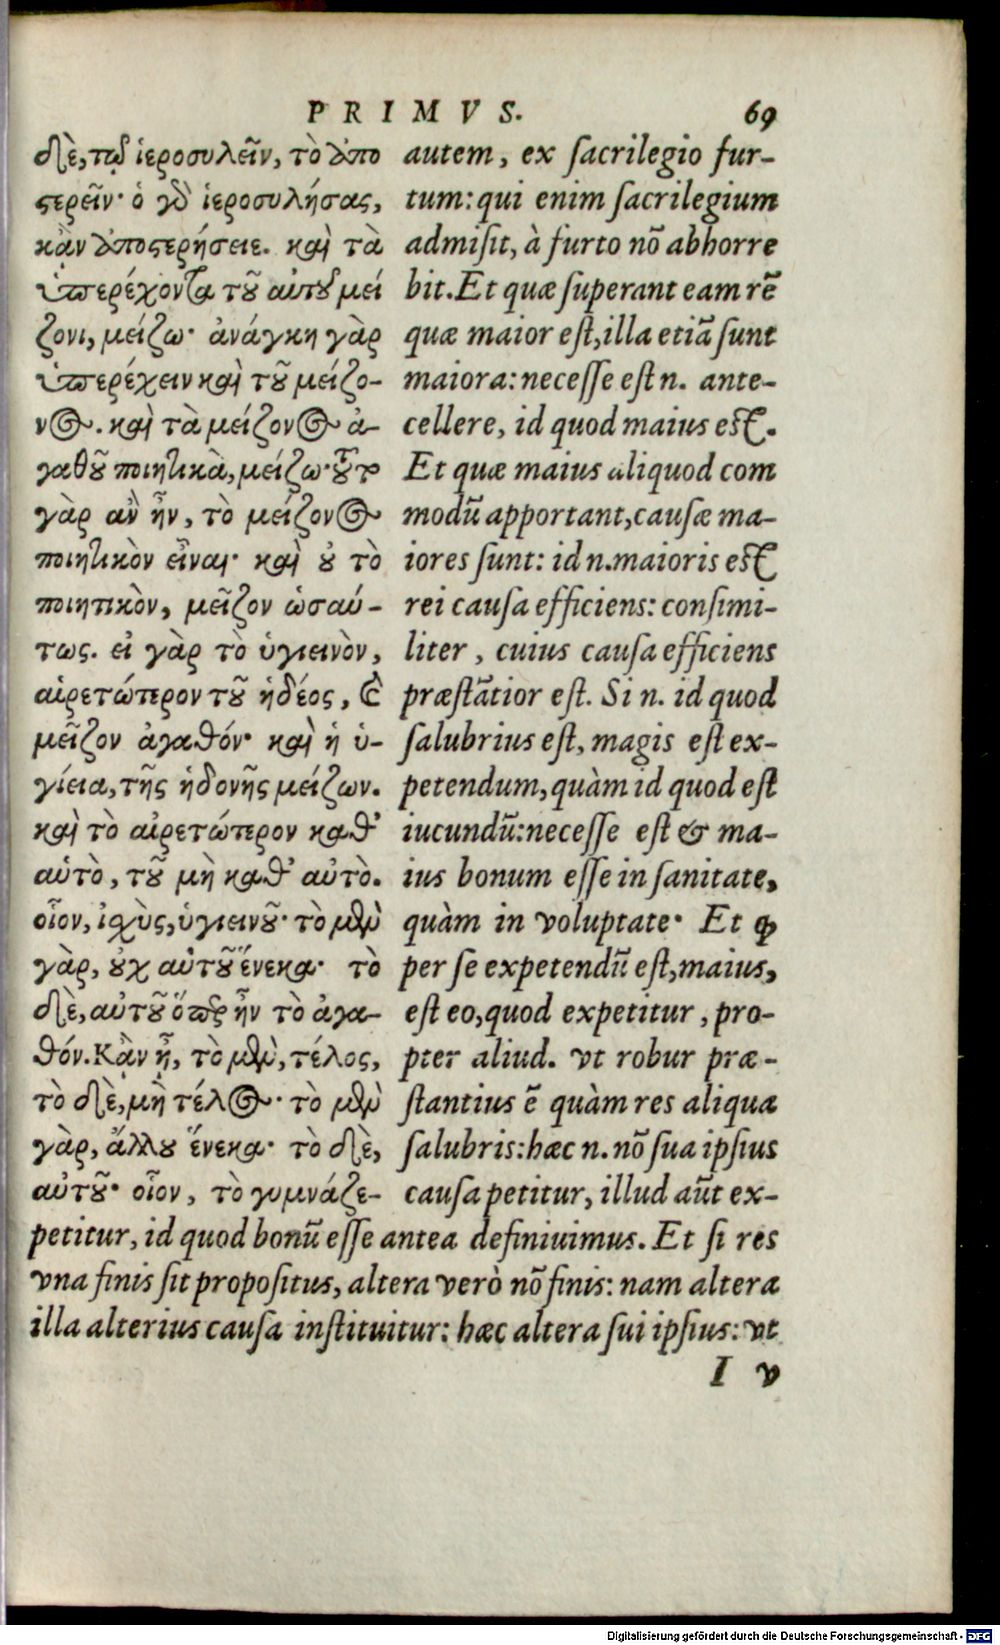 PRIMVS. 69
δὲ, τῷ ἱεροσυλεῖν, τὸ ἀπο
στερεῖν· ὁ γὸ ἱεροσυλήσας,
κᾂν ἀποστερήσειε. καὶ τὰ
ὑπερέχοντα τοῦ αὐτοῦ μεί
ζονι, μείζω· ἀνάγκη γὰρ
ὑπερέχειν καὶ τοῦ μείζο-
νος. καὶ τὰ μείζονος ἀ-
γαθοῦ ποιητικὰ, μείζω· τοῦτο
γὰρ ἂν ἦν, τὸ μείζονος
ποιητικὸν εἶναι· καὶ οὗ τὸ
ποιητικὸν, μεῖζον ὡσαύ-
τως. εἰ γὰρ τὸ ὑγιεινὸν,
αἱρετώτερον τοῦ ἡδέος, καὶ
μεῖζον ἀγαθόν· καὶ ἡ ὑ-
γίεια, τῆς ἡδονῆς μείζων.
καὶ τὸ αἱρετώτερον καθ'
αὑτὸ, τοῦ μὴ καθ' αὑτὸ.
οἷον, ἰχὺς, ὑγιεινοῦ· τὸ μὲν
γὰρ, οὐχ αὑτοῦ ἕνεκα· τὸ
δὲ, αὑτοῦ ὅπερ ἦν τὸ ἀγα-
θόν. Κᾂν ᾖ, τὸ μὲν, τέλος,
τὸ δὲ, μὴ τέλος· τὸ μὲν
γὰρ, ἄλλου ἕνεκα· τὸ δὲ,
αὑτοῦ· οἷον, τὸ γυμνάζε-
autem, ex sacrilegio fur-
tum: qui enim sacrilegium
admisit, à furto nō abhorre
bit. Et quæ superant eam rē
quæ maior est, illa etiā sunt
maiora: necesse est n. ante-
cellere, id quod maius est.
Et quæ maius aliquod com
modū apportant, causæ ma-
iores sunt: id n. maioris est
rei causa efficiens: consimi-
liter, cuius causa efficiens
præstātior est. Si n. id quod
salubrius est, magis est ex-
petendum, quàm id quod est
iucundū: necesse est & ma-
ius bonum esse in sanitate,
quàm in voluptate. Et ꝙ
per se expetendū est, maius,
est eo, quod expetitur, pro-
pter aliud. vt robur præ-
stantius ē quàm res aliqua
salubris: hæc n. nō sua ipsius
causa petitur, illud aūt ex-
petitur, id quod bonū esse antea definiuimus. Et si res
vna finis sit propositus, altera verò nō finis: nam altera
illa alterius causa instituitur: hæc altera sui ipsius: vt
I v
Digitalisierung gefördert durch die Deutsche Forschungsgemeinschaft - DFG